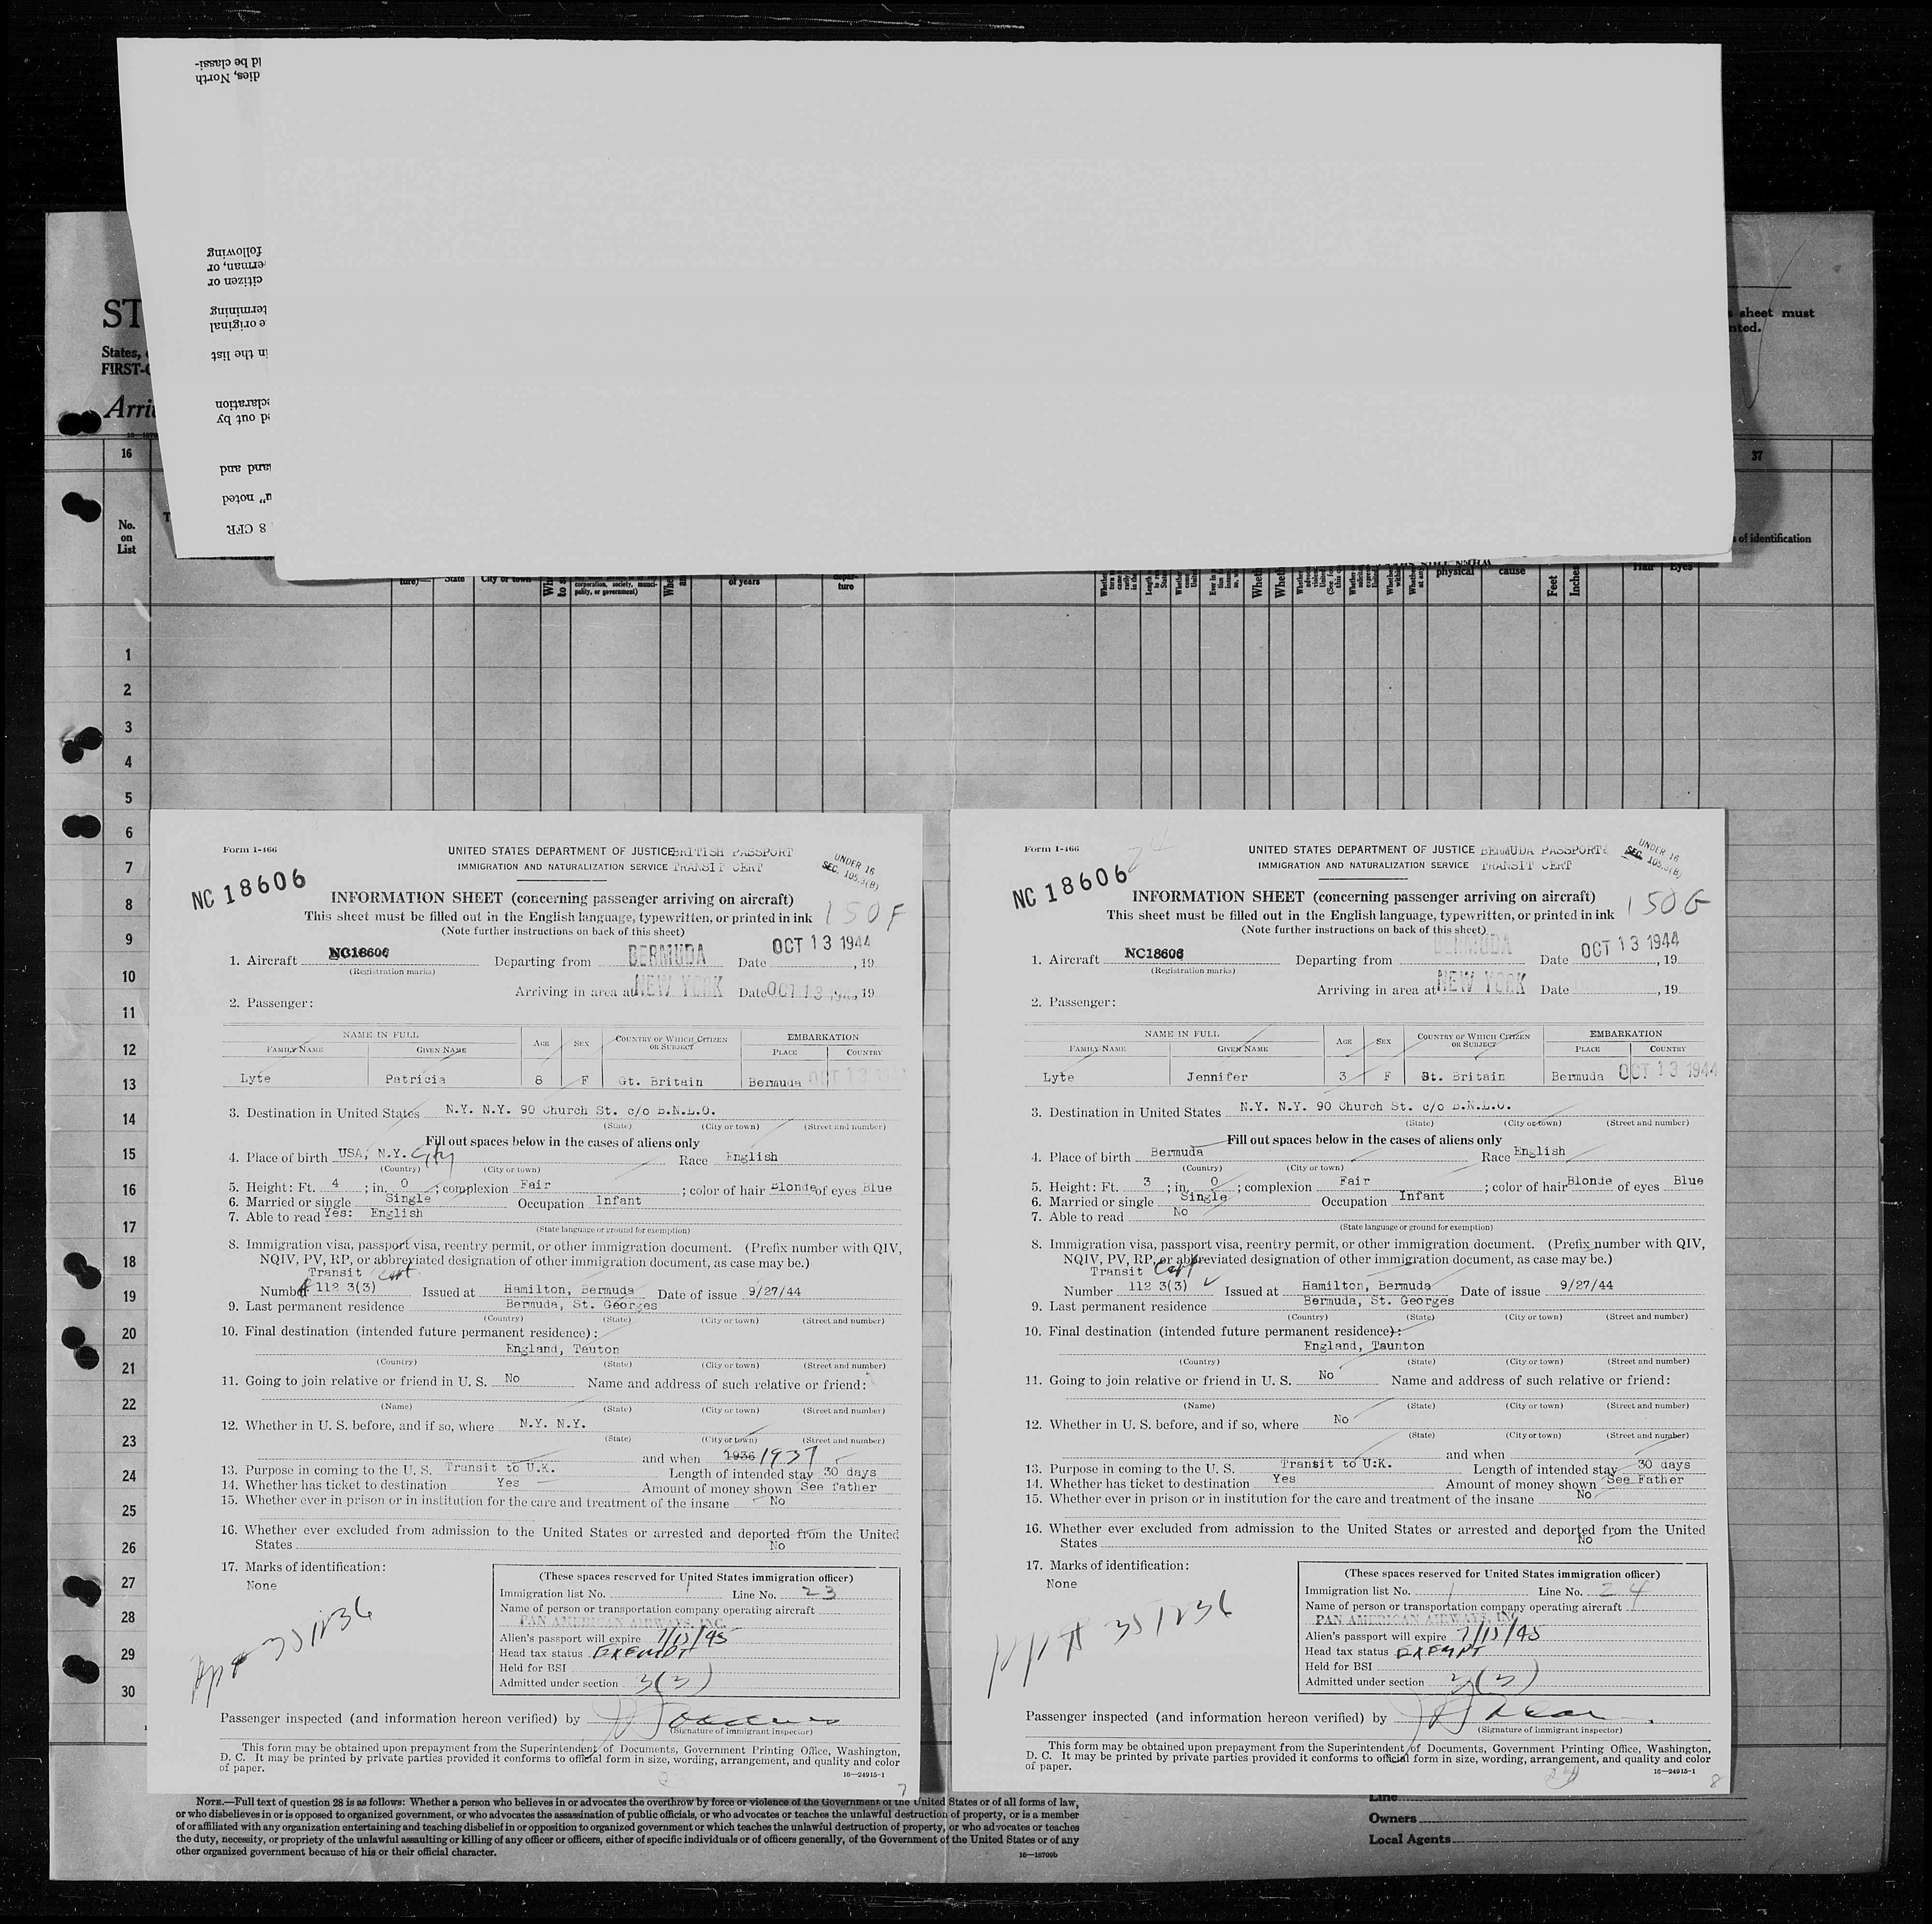 ld be classi-
dies, North
following
erman, or
citizen or
termining
e original
in the list
claration
d out by
and and
u" noted
8 CFR
ST
States,
FIRST-C
Arri
sheet must
nted.
16
37
No.
on
List
s of identification
ture)—
State
City or town
corporation, society, munici-
pality, or government)
of years
depar-
ture
physical
cause
Feet
Inches
Hair
Eyes
1
2
3
4
5
6
7
8
9
10
11
12
13
14
15
16
17
18
19
20
21
22
23
24
25
26
27
28
29
30
Form I-466
UNITED STATES DEPARTMENT OF JUSTICE BRITISH PASSPORT
IMMIGRATION AND NATURALIZATION SERVICE TRANSIT CERT
UNDER 16
SEC. 105.3(B)
NC 18606
INFORMATION SHEET (concerning passenger arriving on aircraft)
This sheet must be filled out in the English language, typewritten, or printed in ink 150F
(Note further instructions on back of this sheet)
1. Aircraft NC18606 Departing from BERMUDA Date OCT 13 1944, 19
(Registration marks)
Arriving in area at NEW YORK Date OCT 13 1944, 19
2. Passenger:
NAME IN FULL
FAMILY NAME GIVEN NAME AGE SEX COUNTRY OF WHICH CITIZEN OR SUBJECT EMBARKATION PLACE COUNTRY
Lyte Patricia 8 F Gt. Britain Bermuda OCT 13 1944
3. Destination in United States N.Y. N.Y. 90 Church St. c/o B.N.L.O.
(State) (City or town) (Street and number)
Fill out spaces below in the cases of aliens only
4. Place of birth USA, N.Y. City Race English
(Country) (City or town)
5. Height: Ft. 4 ; in. 0 ; complexion Fair ; color of hair Blonde of eyes Blue
6. Married or single Single Occupation Infant
7. Able to read Yes: English
(State language or ground for exemption)
8. Immigration visa, passport visa, reentry permit, or other immigration document. (Prefix number with QIV,
NQIV, PV, RP, or abbreviated designation of other immigration document, as case may be.)
Transit Cert
Number 112 3(3) Issued at Hamilton, Bermuda Date of issue 9/27/44
9. Last permanent residence Bermuda, St. Georges
(Country) (State) (City or town) (Street and number)
10. Final destination (intended future permanent residence):
England, Tauton
(Country) (State) (City or town) (Street and number)
11. Going to join relative or friend in U. S. No Name and address of such relative or friend:
(Name) (State) (City or town) (Street and number)
12. Whether in U. S. before, and if so, where N.Y. N.Y.
(State) (City or town) (Street and number)
and when 1936 1937
13. Purpose in coming to the U. S. Transit to U.K. Length of intended stay 30 days
14. Whether has ticket to destination Yes Amount of money shown See father
15. Whether ever in prison or in institution for the care and treatment of the insane No
16. Whether ever excluded from admission to the United States or arrested and deported from the United
States No
17. Marks of identification:
None
ppt 351236
(These spaces reserved for United States immigration officer)
Immigration list No. 1 Line No. 23
Name of person or transportation company operating aircraft
PAN AMERICAN AIRWAYS, INC.
Alien's passport will expire 7/15/45
Head tax status EXEMPT
Held for BSI
Admitted under section 3(3)
Passenger inspected (and information hereon verified) by
(Signature of immigrant inspector)
This form may be obtained upon prepayment from the Superintendent of Documents, Government Printing Office, Washington,
D. C. It may be printed by private parties provided it conforms to official form in size, wording, arrangement, and quality and color
of paper.
16—24915-1
7
Form I-466
24
UNITED STATES DEPARTMENT OF JUSTICE BERMUDA PASSPORT
IMMIGRATION AND NATURALIZATION SERVICE TRANSIT CERT
UNDER 16
SEC. 105.3(B)
NC 18606
INFORMATION SHEET (concerning passenger arriving on aircraft)
This sheet must be filled out in the English language, typewritten, or printed in ink 150G
(Note further instructions on back of this sheet)
1. Aircraft NC18606 Departing from BERMUDA Date OCT 13 1944, 19
(Registration marks)
Arriving in area at NEW YORK Date , 19
2. Passenger:
NAME IN FULL
FAMILY NAME GIVEN NAME AGE SEX COUNTRY OF WHICH CITIZEN OR SUBJECT EMBARKATION PLACE COUNTRY
Lyte Jennifer 3 F Gt. Britain Bermuda OCT 13 1944
3. Destination in United States N.Y. N.Y. 90 Church St. c/o B.N.L.O.
(State) (City or town) (Street and number)
Fill out spaces below in the cases of aliens only
4. Place of birth Bermuda Race English
(Country) (City or town)
5. Height: Ft. 3 ; in. 0 ; complexion Fair ; color of hair Blonde of eyes Blue
6. Married or single Single Occupation Infant
7. Able to read No
(State language or ground for exemption)
8. Immigration visa, passport visa, reentry permit, or other immigration document. (Prefix number with QIV,
NQIV, PV, RP, or abbreviated designation of other immigration document, as case may be.)
Transit Cert
Number 112 3(3) Issued at Hamilton, Bermuda Date of issue 9/27/44
9. Last permanent residence Bermuda, St. Georges
(Country) (State) (City or town) (Street and number)
10. Final destination (intended future permanent residence):
England, Taunton
(Country) (State) (City or town) (Street and number)
11. Going to join relative or friend in U. S. No Name and address of such relative or friend:
(Name) (State) (City or town) (Street and number)
12. Whether in U. S. before, and if so, where No
(State) (City or town) (Street and number)
and when
13. Purpose in coming to the U. S. Transit to U.K. Length of intended stay 30 days
14. Whether has ticket to destination Yes Amount of money shown See Father
15. Whether ever in prison or in institution for the care and treatment of the insane No
16. Whether ever excluded from admission to the United States or arrested and deported from the United
States No
17. Marks of identification:
None
ppt 351236
(These spaces reserved for United States immigration officer)
Immigration list No. 1 Line No. 24
Name of person or transportation company operating aircraft
PAN AMERICAN AIRWAYS, INC
Alien's passport will expire 7/15/45
Head tax status EXEMPT
Held for BSI
Admitted under section 3(3)
Passenger inspected (and information hereon verified) by
(Signature of immigrant inspector)
This form may be obtained upon prepayment from the Superintendent of Documents, Government Printing Office, Washington,
D. C. It may be printed by private parties provided it conforms to official form in size, wording, arrangement, and quality and color
of paper.
16—24915-1
8
NOTE.—Full text of question 28 is as follows: Whether a person who believes in or advocates the overthrow by force or violence of the Government of the United States or of all forms of law,
or who disbelieves in or is opposed to organized government, or who advocates the assassination of public officials, or who advocates or teaches the unlawful destruction of property, or is a member
of or affiliated with any organization entertaining and teaching disbelief in or opposition to organized government or which teaches the unlawful destruction of property, or who advocates or teaches
the duty, necessity, or propriety of the unlawful assaulting or killing of any officer or officers, either of specific individuals or of officers generally, of the Government of the United States or of any
other organized government because of his or their official character.
16—18709b
Line
Owners
Local Agents